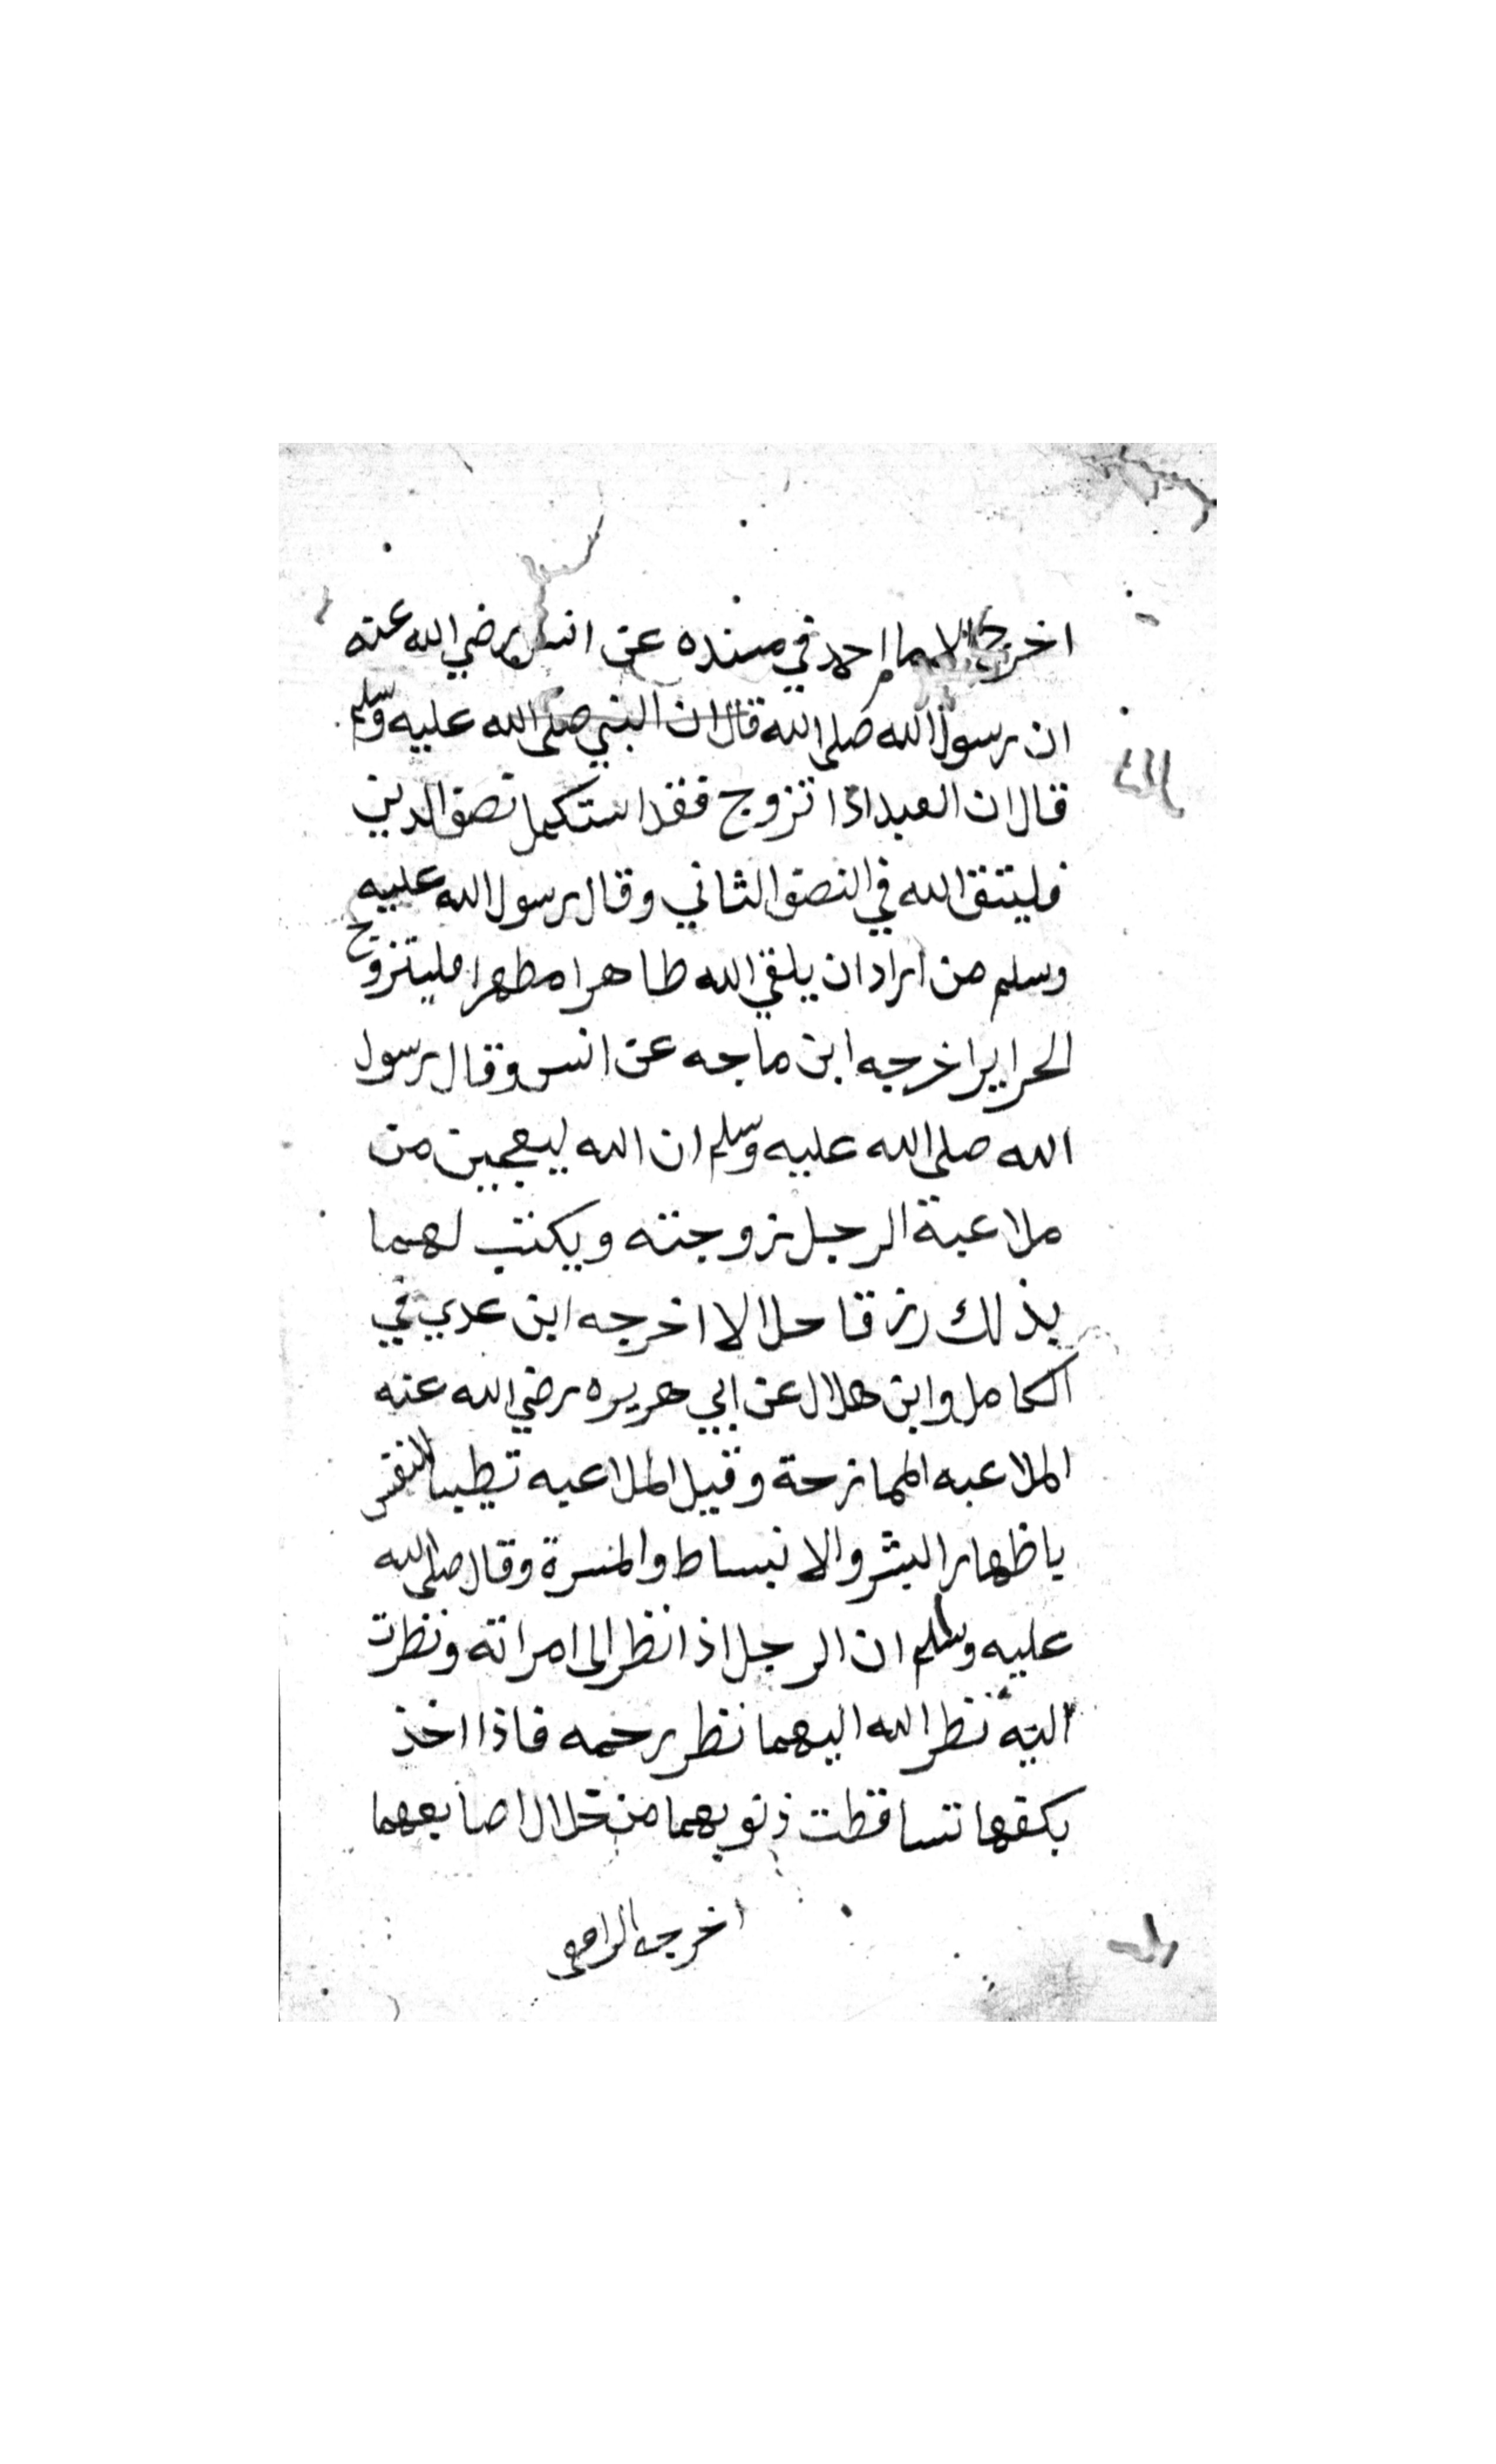 اخرج الامام احمد في مسنده عن انس رضي الله عنه
ان رسول الله صلى الله قال ان النبي صلى الله عليه وسلم
قال ان العبد اذا تزوج فقد استكمل نصف الدين
فليتق الله في النصف الثاني وقال رسول الله عليه
وسلم من اراد ان يلقي الله طاهرا مطهرا فليتزوج
الحراير اخرجه ابن ماجه عن انس وقال رسول
الله صلى الله عليه وسلم ان الله ليعجبن من
ملاعبة الرجل زوجته ويكتب لهما
بذلك رزقا حلالا اخرجه ابن عدي في
الكامل وابن هلال عن ابي هريره رضي الله عنه
الملاعبه الممازحة وقيل الملاعبه تطيب النفس
باظهار البشر والانبساط والمسرة وقال صلى الله
عليه وسلم ان الرجل اذا نظر الى امراته ونظرت
اليه نظر الله اليهما نظر رحمه فاذا اخذ
بكفها تساقطت ذنوبهما من خلال اصابعهما
اخرجه الرافعي